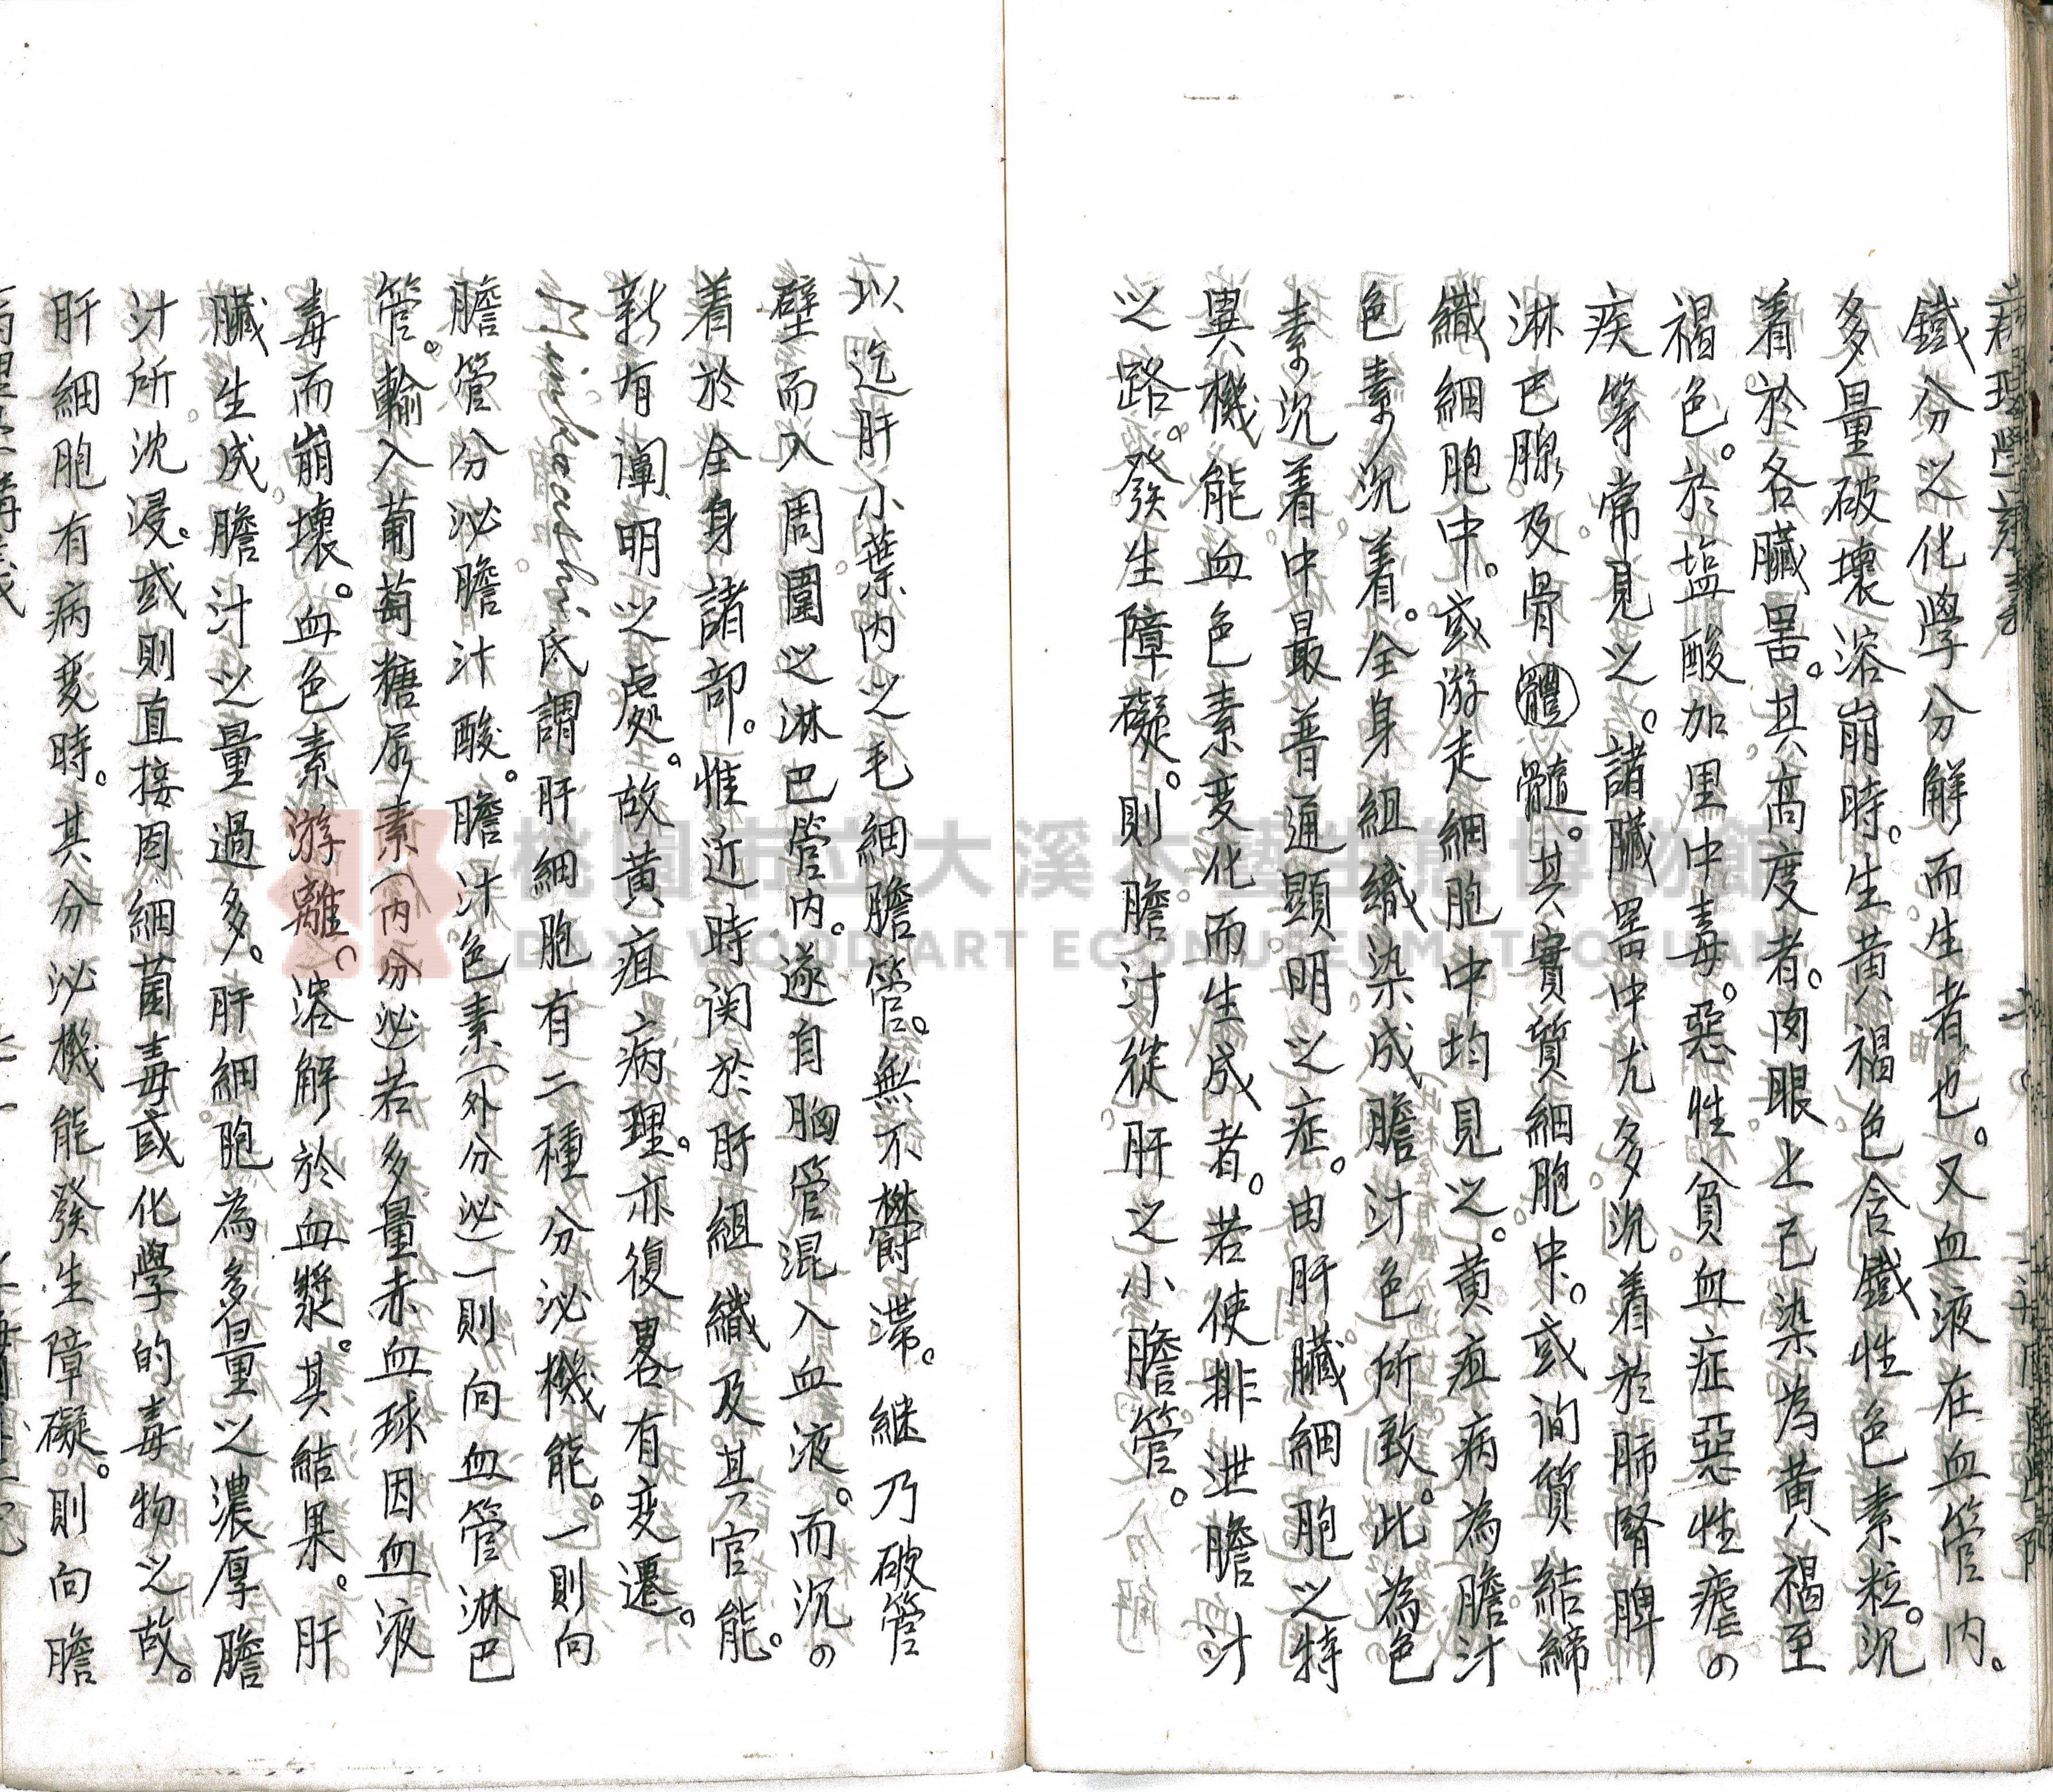 病理學講義
鐵分以化學分解而生者也。又血液在血管內。
多量破壞溶崩時。生黃褐色含鐵性色素粒。沉
着於各臟器。其高度者。肉眼上已染為黃褐至
褐色。於塩酸加里中毒。惡性貧血症惡性瘧の
疾等常見之。諸臟器中尤多沉着於肺腎脾
淋巴腺及骨體髓。其實質細胞中。或間質結締
織細胞中。或游走細胞中均見之。黃疸病為膽汁
色素の沉着。全身組織染成膽汁色所致。此為色
素の沉着中最普通顯明之症。由肝臟細胞之特
異機能血色素变化而生成者。若使排泄膽汁
之路。發生障礙。則膽汁從肝之小膽管。
以迄肝小葉內之毛細膽管。無不欝滯。継乃破管
壁而入周圍之淋巴管內。遂自胸管混入血液。而沉の
着於全身諸部。惟近時関於肝組織及其官能。
新有闡明之處。故黃疸病理。亦復畧有变遷。
Minkowshi氏謂肝細胞有二種分泌機能。一則向
膽管分泌膽汁酸。膽汁色素(外分泌)一則向血管淋巴
管。輸入葡萄糖尿素(內分泌)若多量赤血球因血液
毒而崩壞。血色素游離。溶解於血漿。其結果。肝
臟生成膽汁之量過多。肝細胞為多量之濃厚膽
汁所沈浸。或則直接因細菌毒或化學的毒物之故。
肝細胞有病变時。其分泌機能發生障礙。則向膽
病理學講義
桃園市立大溪木藝生態博物館
DAXI WOOD ART ECOMUSEUM, TAOYUAN